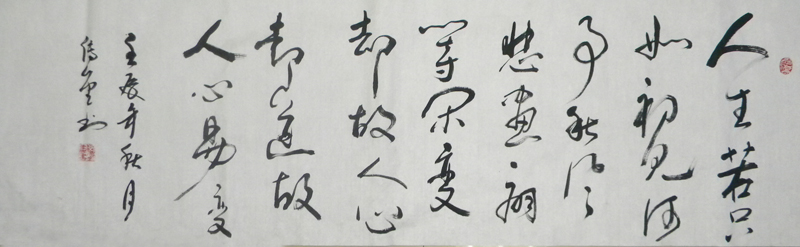 人生若只
如初见何
事秋风
悲画扇
等闲变
却故人心
却道故
人心易变
壬辰年秋月